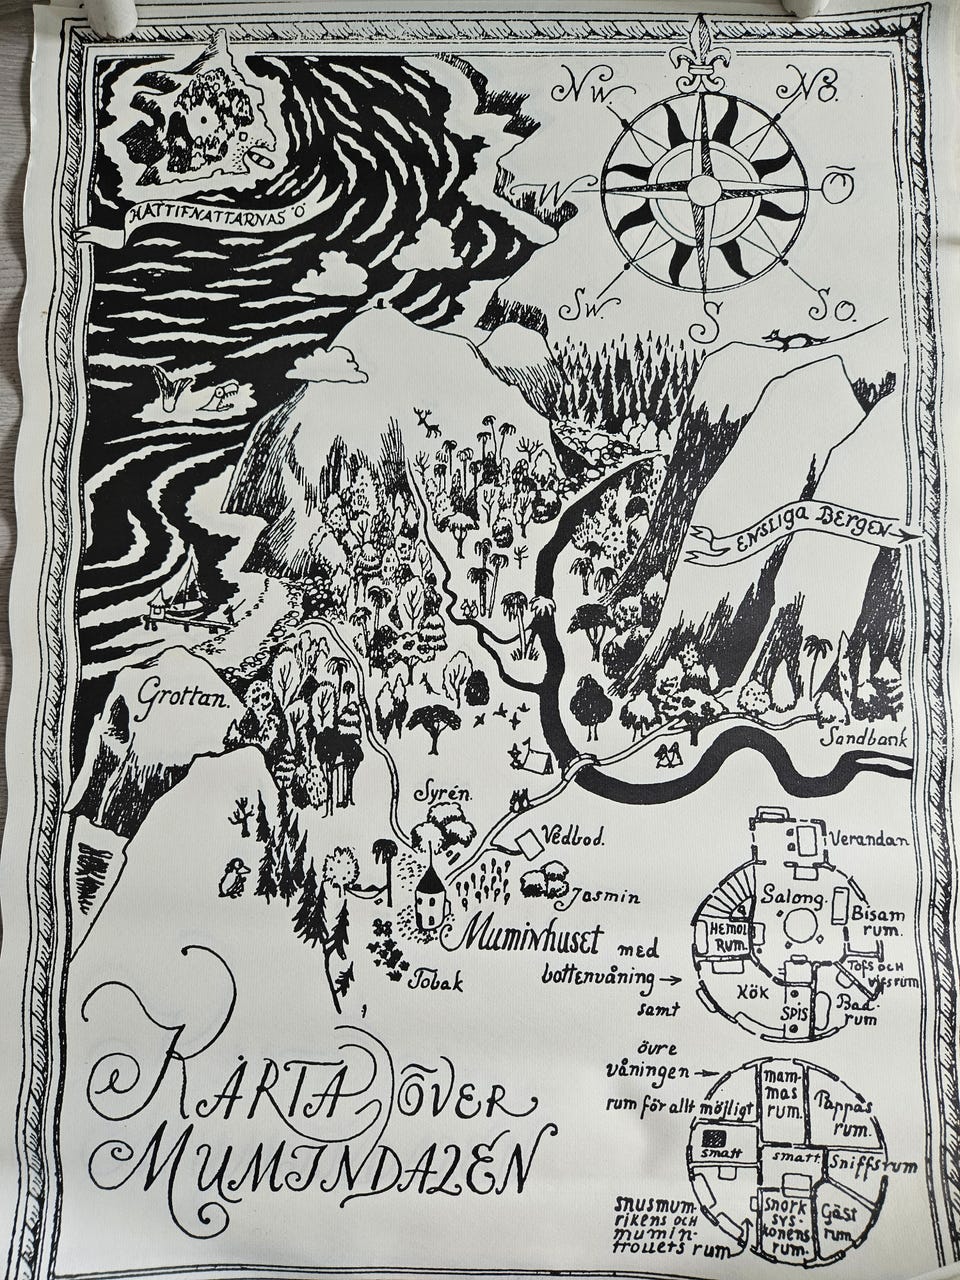 NW.
NÖ.
W
Ö
SW.
S
SO.
HATTIFNATTARNAS Ö
ENSLIGA BERGEN
Grottan.
Sandbank
Syrén.
Vedbod.
Jasmin
Muminhuset med
bottenvåning →
samt
Tobak
Verandan
Salong.
Bisam
rum.
HEMUL
RUM.
TOFS OCH
VIFSRUM
KÖK
SPIS
Bad-
rum
övre
våningen →
rum för allt möjligt
mam-
mas
rum.
Pappas
rum.
smatt
smatt
Sniffsrum
snusmum-
rikens och
mumin-
trollets rum
snork
sys-
konens
rum.
Gäst
rum
KARTA ÖVER
MUMINDALEN